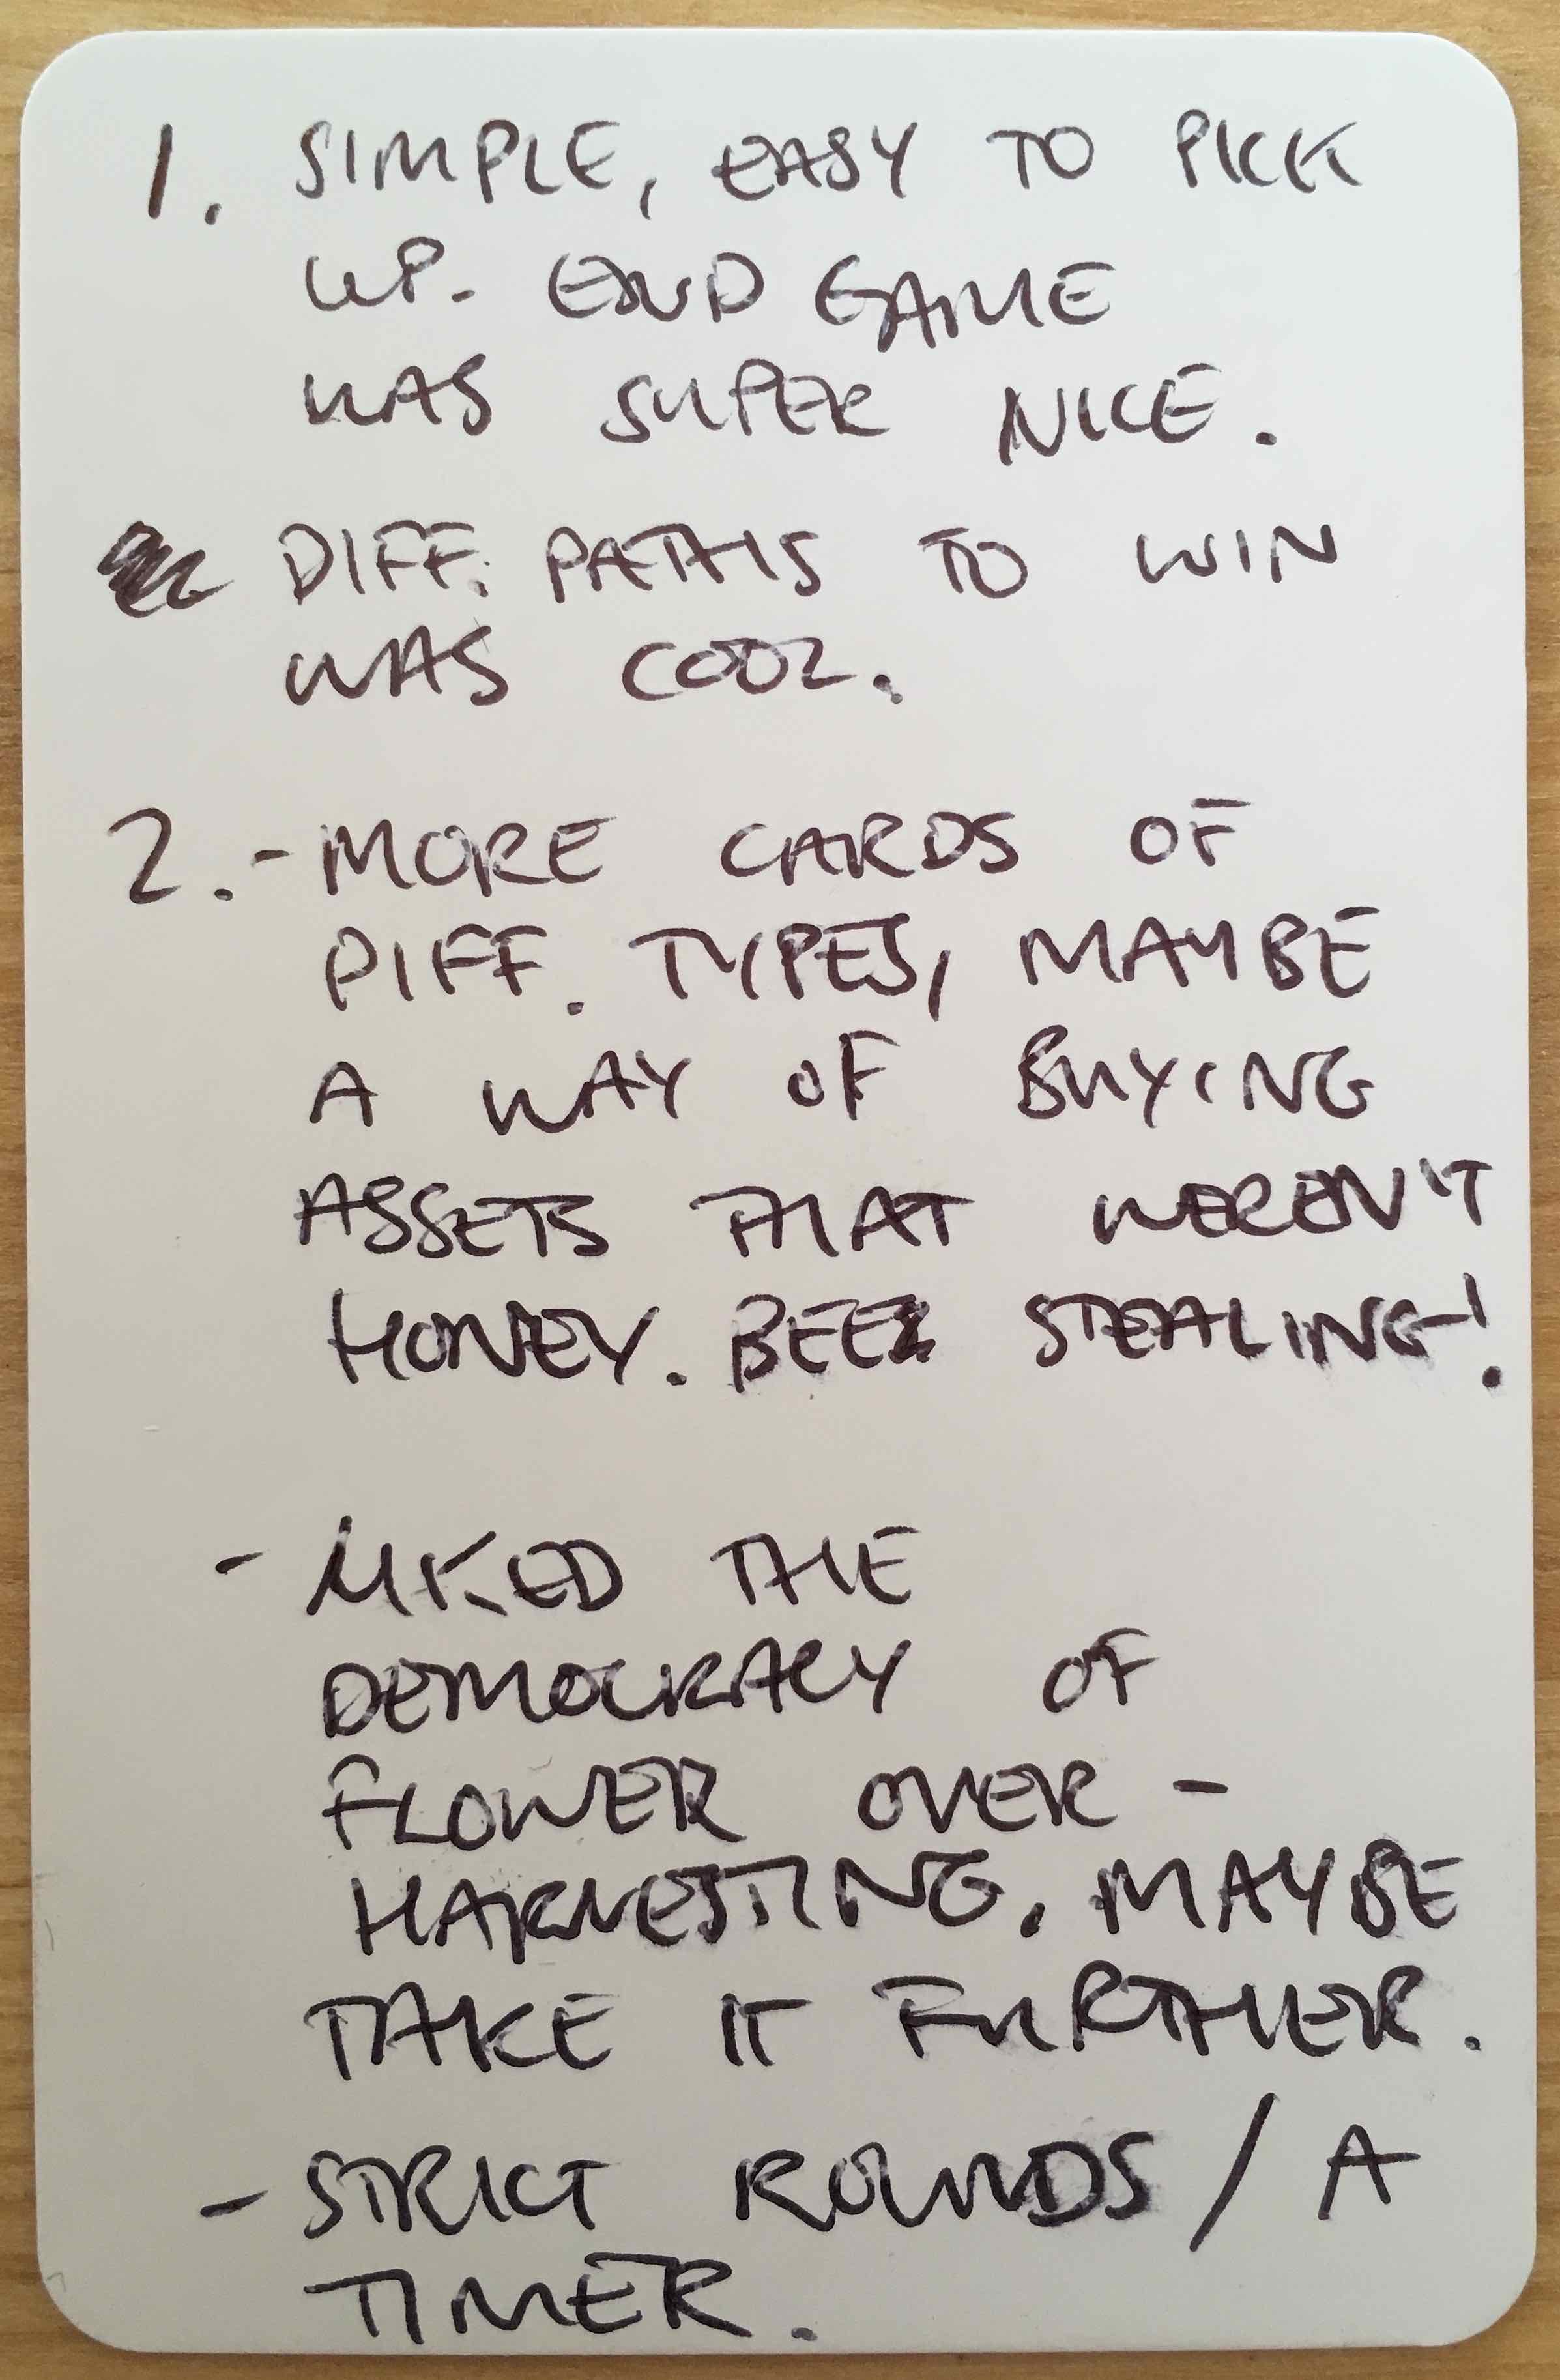 1. SIMPLE, EASY TO PICK
UP. END GAME
WAS SUPER NICE.
DIFF. PATHS TO WIN
WAS COOL.
2. - MORE CARDS OF
DIFF. TYPES, MAYBE
A WAY OF BUYING
ASSETS THAT WEREN'T
HONEY. BEE STEALING!
- LIKED THE
DEMOCRACY OF
FLOWER OVER-
HARVESTING. MAYBE
TAKE IT FURTHER.
- STRICT ROUNDS / A
TIMER.